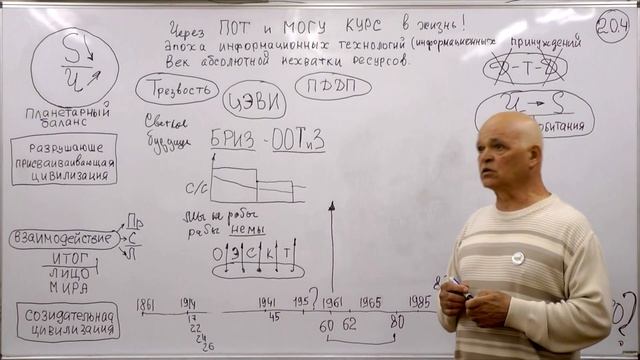 Через ПОТ и МОГУ КУРС в жизнь!
эпоха информационных технологий (информационных принуждений
Век абсолютной нехватки ресурсов.
20.4
S
И
Планетарный
баланс
Трезвость
ЦЭВИ
ПДДП
Д-Т-Д
И → S
обитания
разрушающе
присваиваивающая
цивилизация
Светлое
будущее
БРИЗ - ООТиЗ
С/С
Мы не рабы
рабы немы
О Э С К Т
взаимодействие
Пр
С
Л
ИТОГ
ЛИЦО
МИРА
Созидательная
цивилизация
1861 1914 1941 195? 1961 1965 1985
17 45 60 62 80
22
24
26